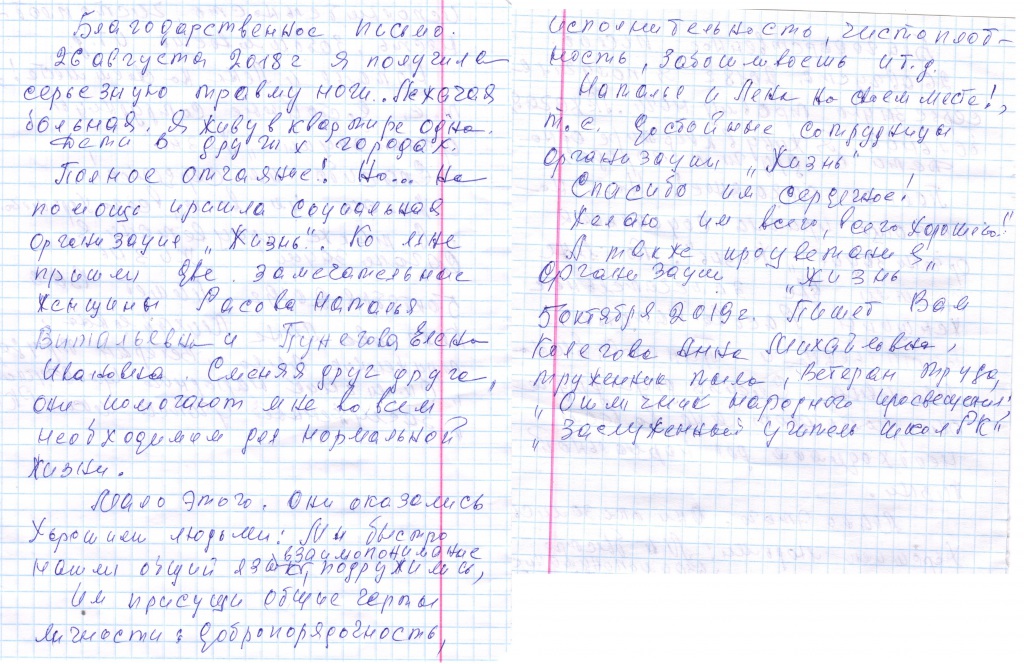 Благодарственное письмо.
26 августа 2018 г я получила
серьезную травму ноги.. Лежачая
больная. Я живу в квартире одна.
Дети в других городах.
Полное отчаяние! Но... На
помощь пришла социальная
организация „Жизнь". Ко мне
пришли две замечательные
женщины Расова Наталья
Витальевна и Пунегова Елена
Ивановна. Сменяя друг друга,
они помогают мне во всём
необходимом для нормальной
жизни.
Мало этого. Они оказались
хорошими людьми! Мы быстро
взаимопонимание
нашли общий язык, подружились,
Им присущи общие черты
личности: добропорядочность,
исполнительность, чистоплот-
ность, заботливость и т.д.
Наталья и Лена на своем месте!,
т.е. достойные сотрудницы
организации „Жизнь"
Спасибо им сердечное!
Желаю им всего, всего хорошего!
А также процветания
организации „Жизнь"
5 октября 2019 г. Пишет Вам
Колегова Анна Михайловна,
труженик тыла, Ветеран труда,
„Отличник народного просвещения"
„Заслуженный учитель школ РК"